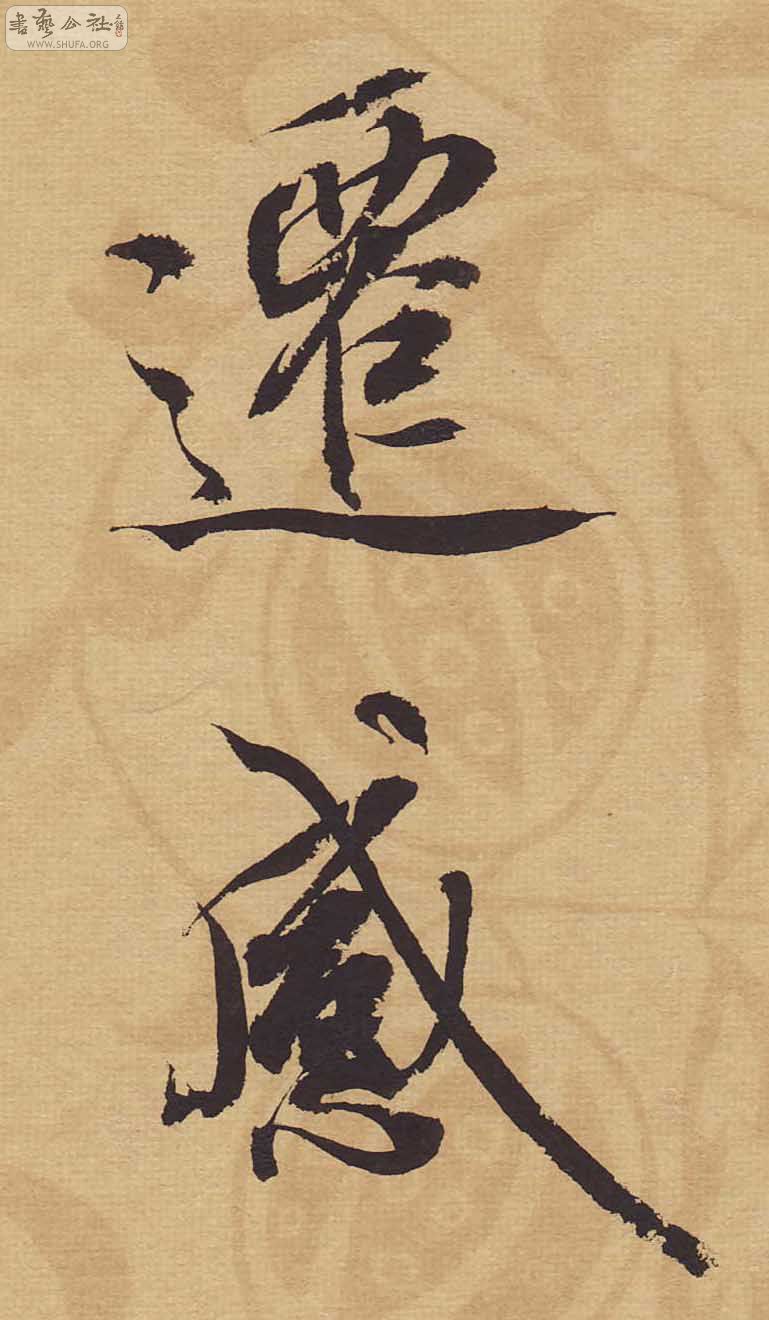 書藝公社
WWW.SHUFA.ORG
遷
感